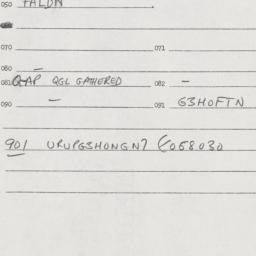 050 FALDN .
070 071
080 —
081 Q-AP QGL GATHERED 082 —
090 — 091 G3HOFTN
901 URUPG3HONGN7 E058030